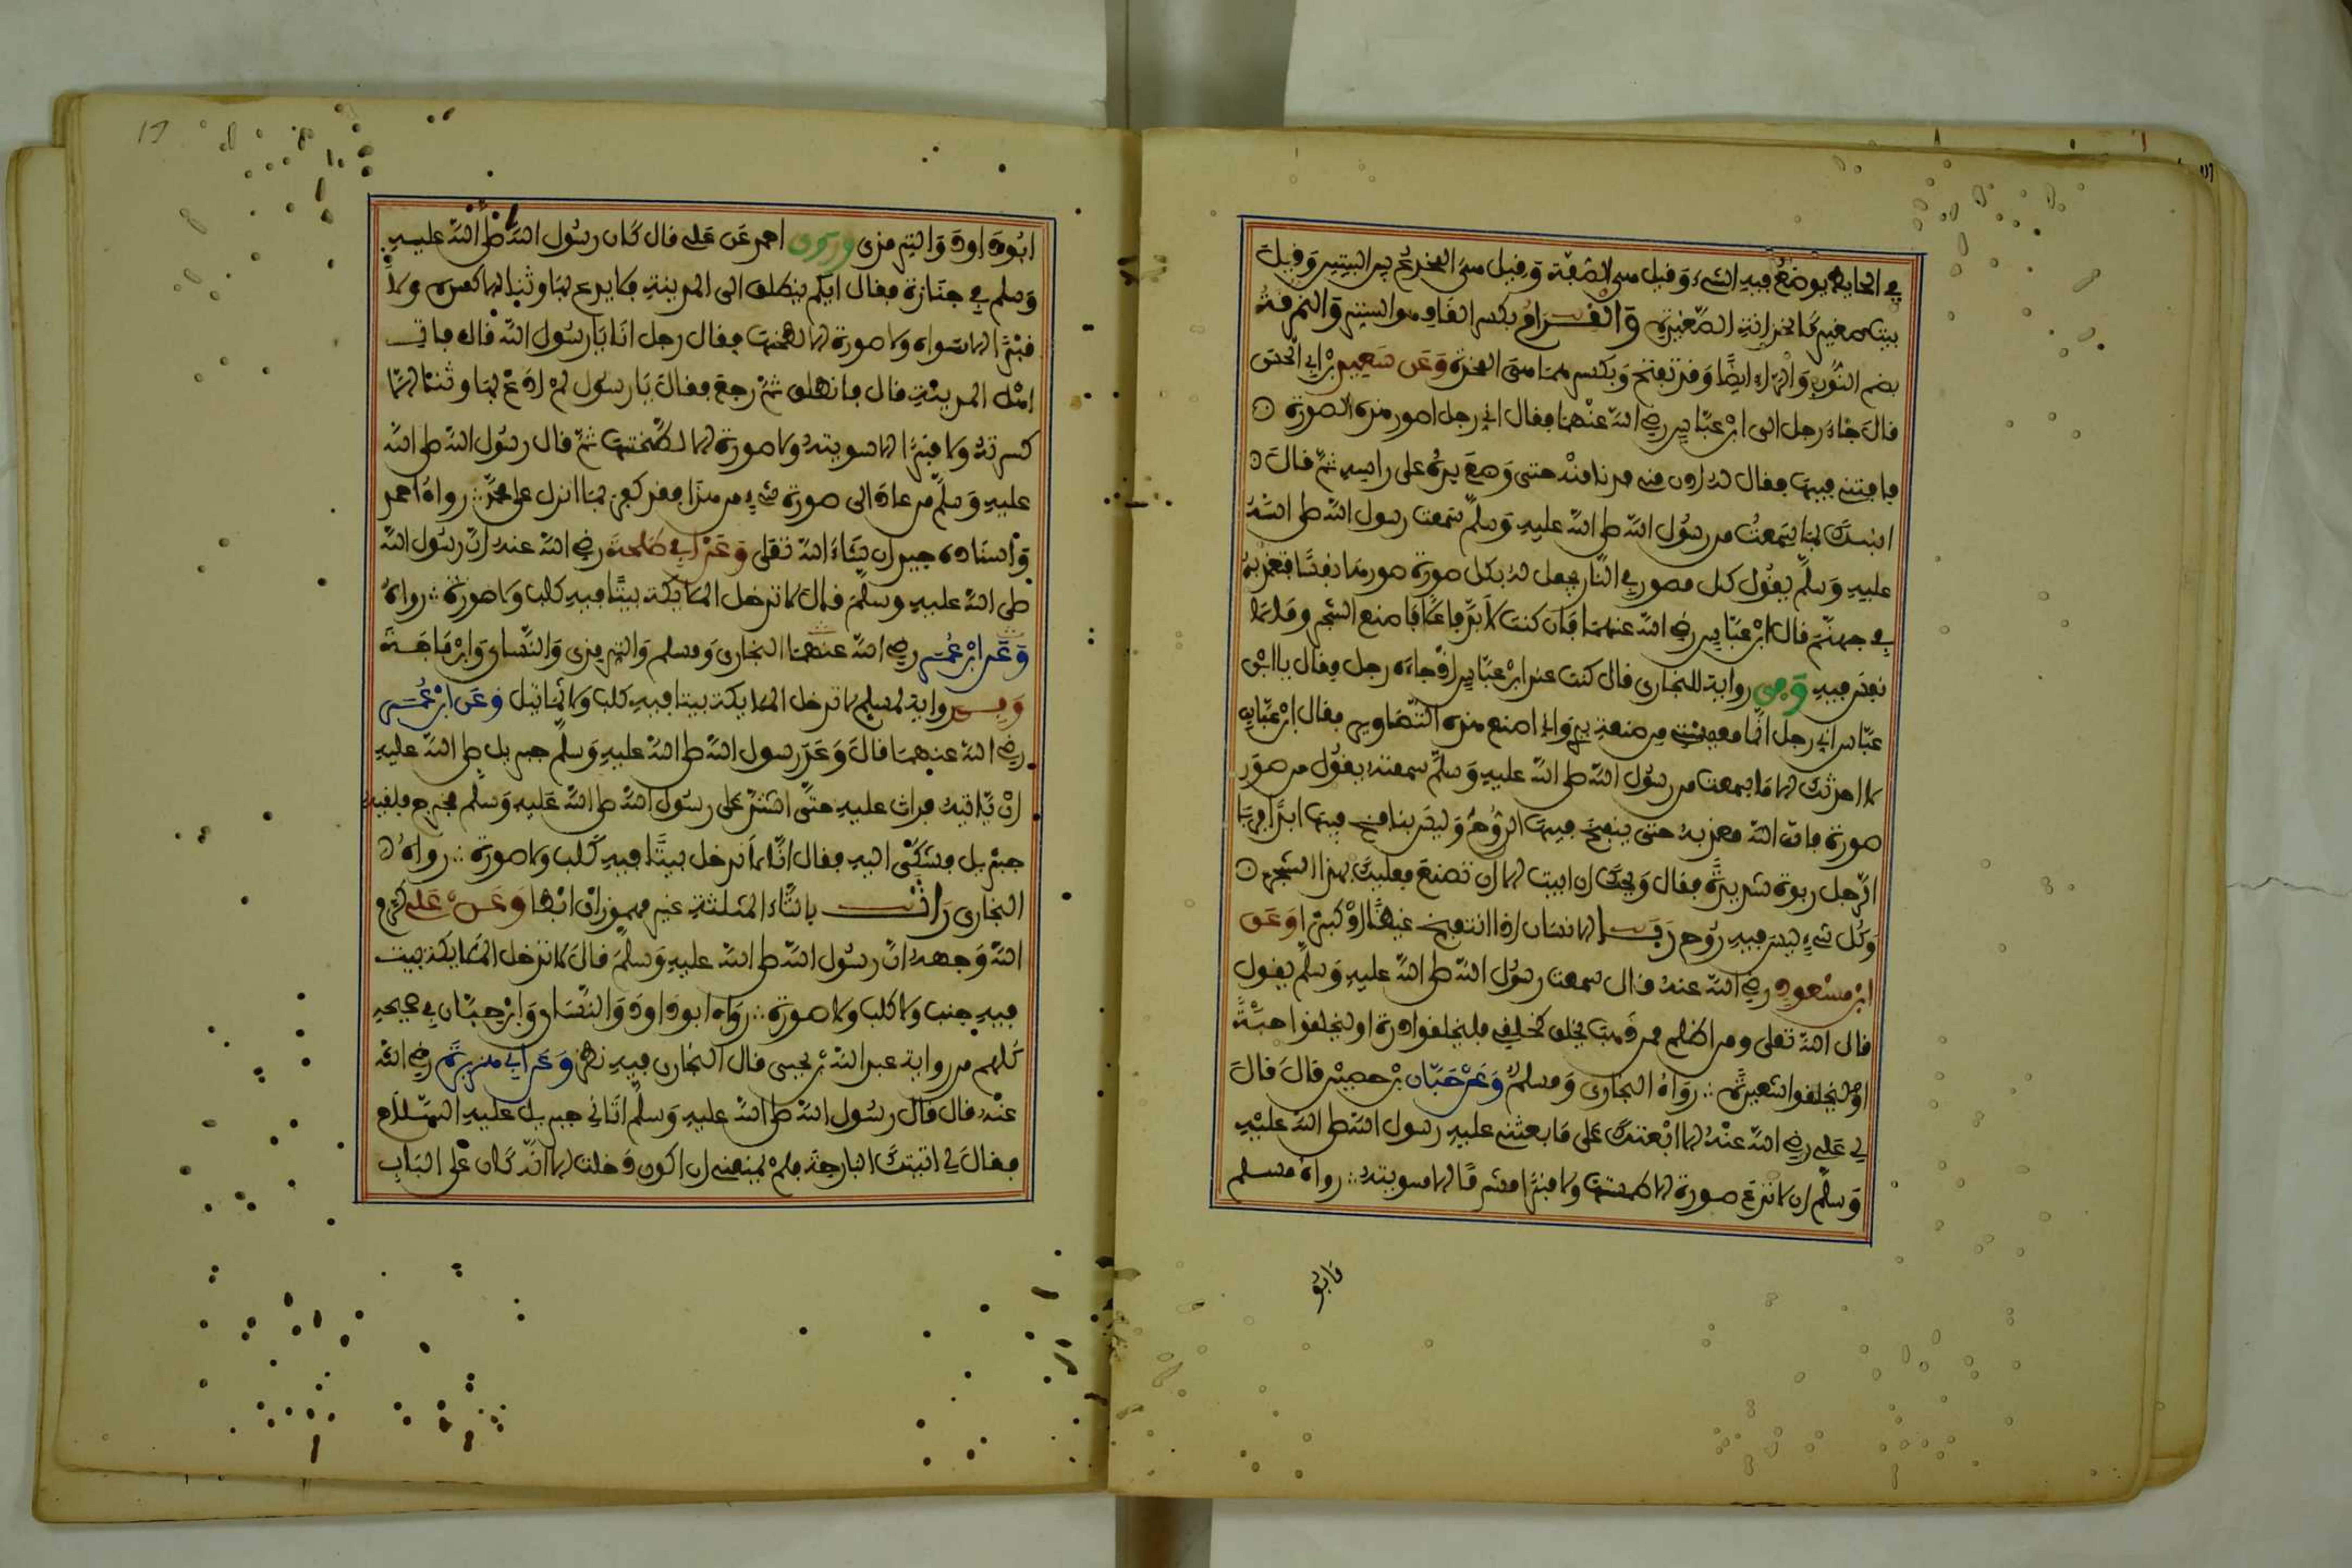 في الحائط يوضع فيه الشيء وقيل هي الصفة وقيل هي المخدع بين البيتين وقيل
بيت صغير كالخزانة الصغيرة والقرام بكسر القاف هو الستر والنمرقة
بضم النون والراء ايضا وقد تفتح وبكسرهما هي المخدة وعن سعيد بن ابي الحسن
قال جاء رجل الى ابن عباس رضي الله عنهما فقال اني رجل اصور هذه الصورة
فافتني فيها فقال له ادن مني فدنا منه حتى وضع يده على راسه ثم قال
انبئك بما سمعت من رسول الله صلى الله عليه وسلم سمعت رسول الله صلى الله
عليه وسلم يقول كل مصور في النار يجعل له بكل صورة صورها نفسا فتعذبه
في جهنم قال ابن عباس رضي الله عنهما فان كنت لا بد فاعلا فاصنع الشجر وما لا
نفس فيه وفي رواية للبخاري قال كنت عند ابن عباس اذ جاءه رجل فقال يا ابن
عباس اني رجل انما معيشتي من صنعة يدي واني اصنع هذه التصاوير فقال ابن عباس
لا احدثك الا ما سمعت من رسول الله صلى الله عليه وسلم سمعته يقول من صور
صورة فان الله معذبه حتى ينفخ فيها الروح وليس بنافخ فيها ابدا فربا
الرجل ربوة شديدة فقال ويحك ان ابيت الا ان تصنع فعليك بهذا الشجر
وكل شيء ليس فيه روح ربا الانسان اذا انتفخ غيظا او كبرا وعن
ابن مسعود رضي الله عنه قال سمعت رسول الله صلى الله عليه وسلم يقول
قال الله تعلى ومن اظلم ممن ذهب يخلق كخلقي فليخلقوا ذرة او ليخلقوا حبة
او ليخلقوا شعيرة رواه البخاري ومسلم وعن حيان بن حصين قال قال
لي علي رضي الله عنه الا ابعثك على ما بعثني عليه رسول الله صلى الله عليه
وسلم ان لا تدع صورة الا طمستها ولا قبرا مشرفا الا سويته رواه مسلم
وابو
ابو داود والترمذي وروى احمد عن علي قال كان رسول الله صلى الله عليه
وسلم في جنازة فقال ايكم ينطلق الى المدينة فلا يدع بها وثنا الا كسره ولا
قبرا الا سواه ولا صورة الا لطخها فقال رجل انا يا رسول الله قال فهاب
اهل المدينة قال فانطلق ثم رجع فقال يا رسول لم ادع بها وثنا الا
كسرته ولا قبرا الا سويته ولا صورة الا لطختها ثم قال رسول الله صلى الله
عليه وسلم من عاد الى صورة شيء من هذا فقد كفر بما انزل على محمد رواه احمد
واسناده جيد ان شاء الله تعلى وعن ابي طلحة رضي الله عنه ان رسول الله
صلى الله عليه وسلم قال لا تدخل الملايكة بيتا فيه كلب ولا صورة رواه
وعن ابن عمر رضي الله عنهما البخاري ومسلم والترمذي والنساي وابن ماجة
وفي رواية لمسلم لا تدخل الملايكة بيتا فيه كلب ولا تماثيل وعن ابن عمر
رضي الله عنهما قال وعد رسول الله صلى الله عليه وسلم جبريل صلى الله عليه
ان ياتيه فراث عليه حتى اشتد على رسول الله صلى الله عليه وسلم فخرج فلقيه
جبريل فشكى اليه فقال انا لا ندخل بيتا فيه كلب ولا صورة رواه
البخاري راث بالثاء المثلثة غير مهموز ان ابطا وعن علي كرم
الله وجهه ان رسول الله صلى الله عليه وسلم قال لا تدخل الملايكة بيت
فيه جنب ولا كلب ولا صورة رواه ابو داود والنساي وابن حبان في صحيحه
كلهم من رواية عبد الله بن يحيى قال البخاري فيه نظر وعن ابي هريرة رضي الله
عنه قال قال رسول الله صلى الله عليه وسلم اتاني جبريل عليه السلام
فقال لي اتيتك البارحة فلم يمنعني ان اكون دخلت الا انه كان على الباب